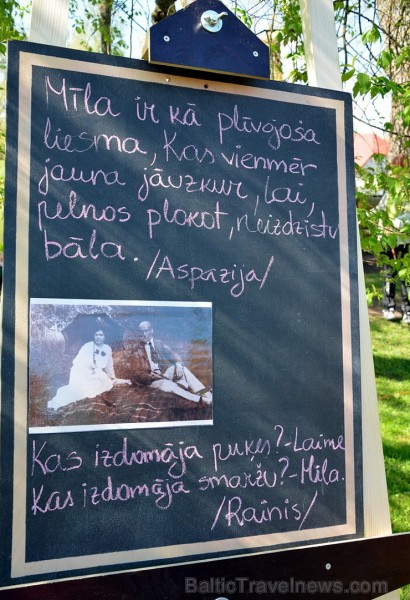 Mīla ir kā plīvojoša
liesma, Kas vienmēr
jauna jāuzkur, Lai,
pelnos plokot, neizdzistu
bāla.
/Aspazija/
Kas izdomāja pukes?-Laime
Kas izdomāja smaržu?-Mīla.
/Rainis/
BalticTravelnews.com